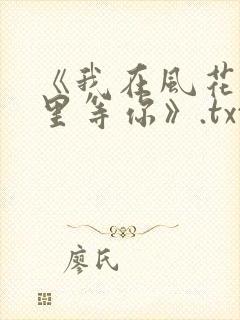 《我在風花
里等你》.tx
廖氏